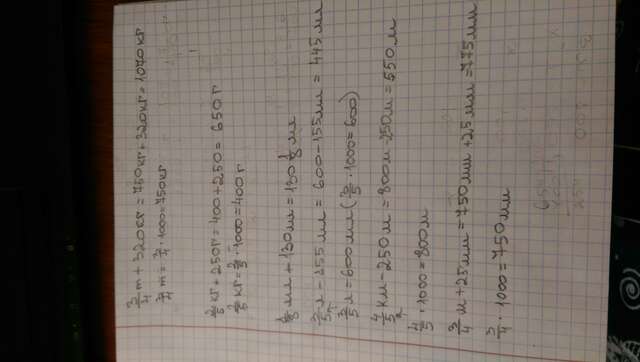 3/4 т + 320кг = 750кг + 320кг = 1070кг
3/4 т = 3/4 · 1000 = 750кг
2/5 кг + 250г = 400 + 250 = 650г
2/5 кг = 2/5 · 1000 = 400г
1/8 мм + 130мм = 130 1/8 мм
3/5 м - 155мм = 600 - 155мм = 445мм
3/5 м = 600мм (3/5 · 1000 = 600)
4/5 км - 250м = 800м - 250м = 550м
4/5 · 1000 = 800м
3/4 м + 25мм = 750мм + 25мм = 775мм
3/4 · 1000 = 750мм